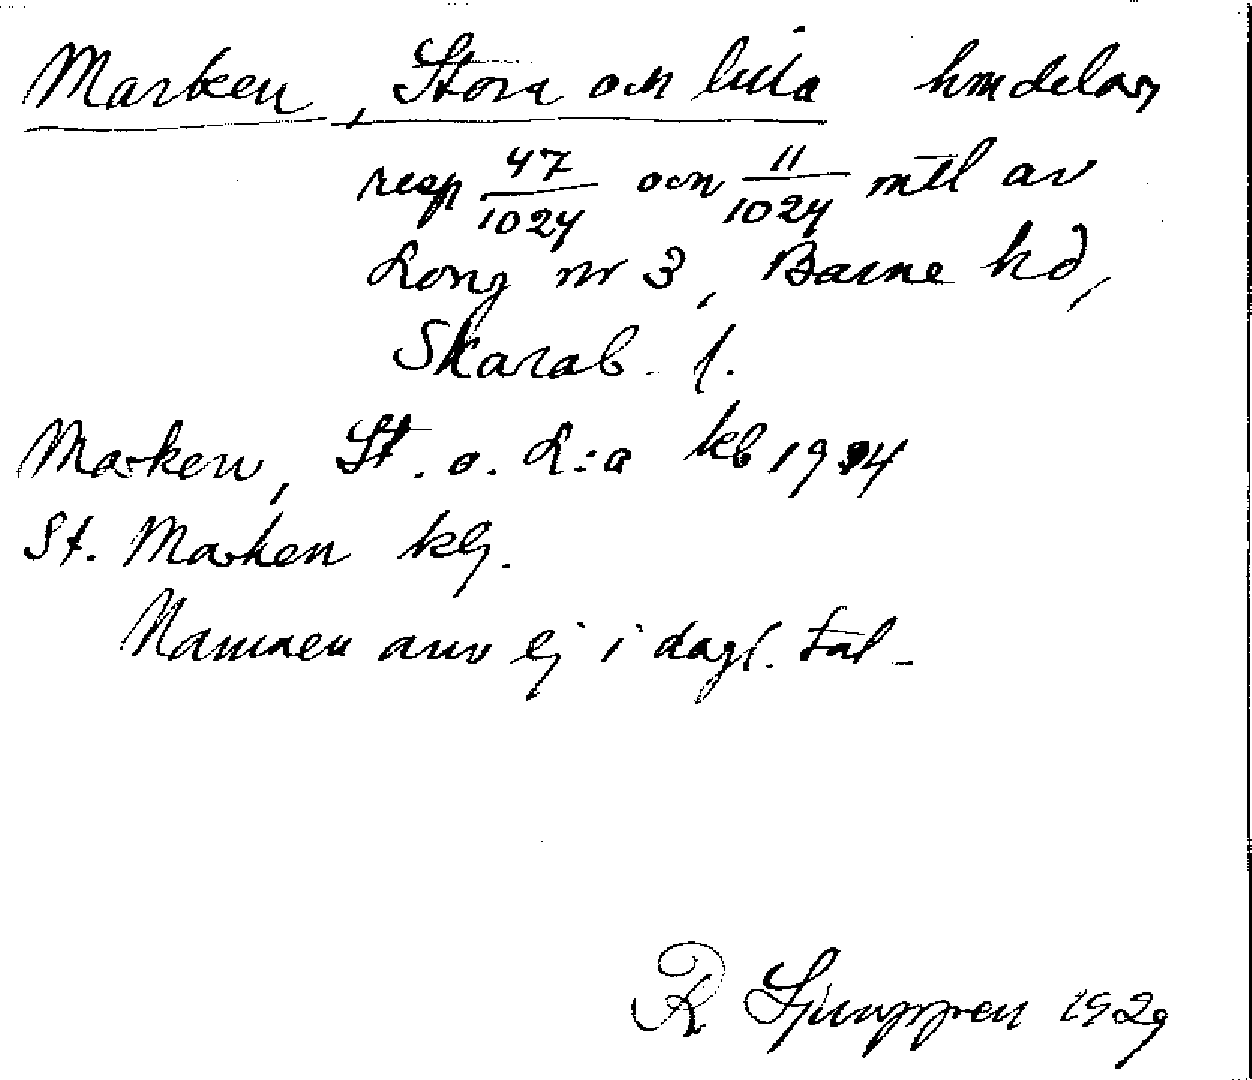 Marken, Stora och lilla hmdelar,
resp 47/1024 och 11/1024 mtl av
Long nr 3, Barne hd,
Skarab. l.
Marken, St. o. L:a kb 1924
St. Marken kb.
Namnen anv ej i dagl. tal.
R Ljunggren 1929